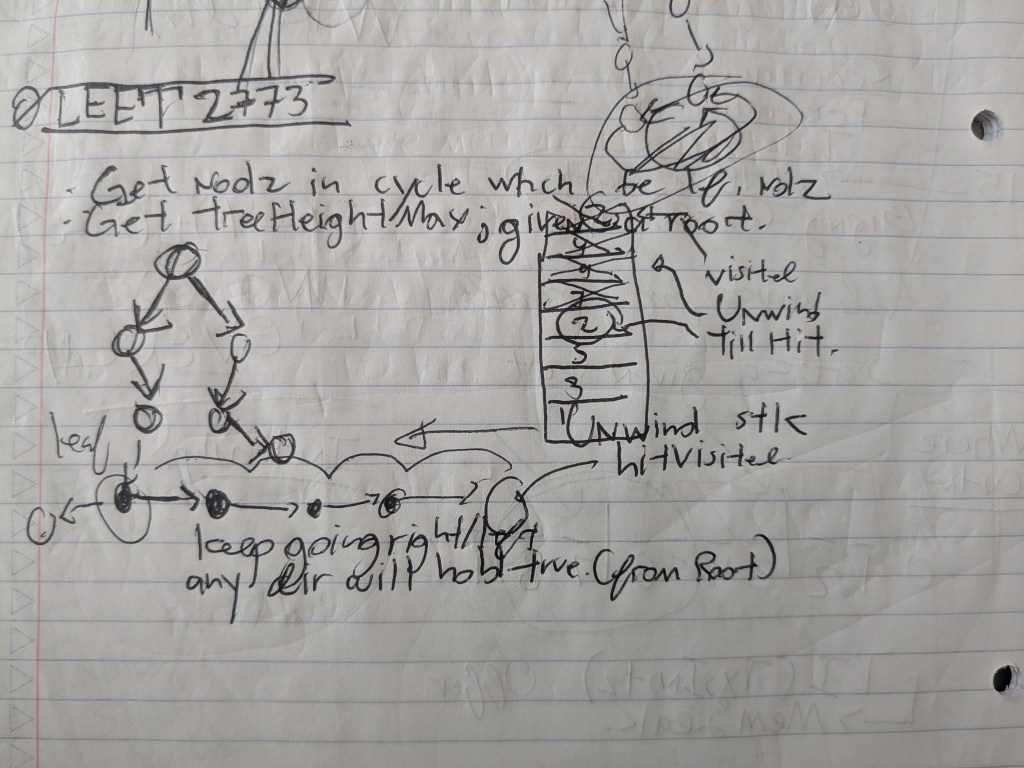 LEET 2773
· Get Node in cycle which be lf. node
· Get treeHeight/Max; given root.
4
2
5
3
1
visited
Unwind
till Hit.
leaf
Unwind stk
hit visited
keep going right/left
any dir will hold true. (from Root)